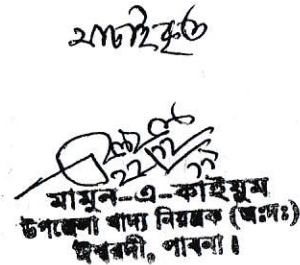 যাচাইকৃত
মামুন-এ-কাইয়ুম
উপজেলা খাদ্য নিয়ন্ত্রক (অঃদাঃ)
ঈশ্বরদী, পাবনা।